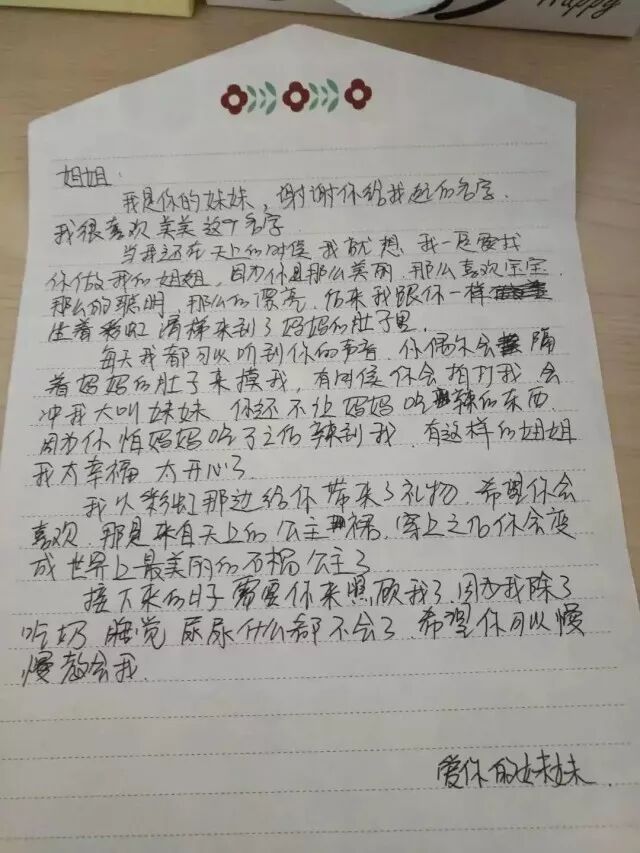 Happy
姐姐:
我是你的妹妹,谢谢你给我起的名字.
我很喜欢美美这个名字
当我还在天上的时候 我就想 我一定要找
你做我的姐姐,因为你是那么美丽.那么喜欢宝宝.
那么的聪明.那么的漂亮.后来我跟你一样
坐着彩虹滑梯来到了妈妈的肚子里.
每天我都可以听到你的声音.你偶尔会隔
着妈妈的肚子来摸我,有时候你会拍打我 会
冲我大叫妹妹 你还不让妈妈吃辣的东西.
因为你怕妈妈吃了之后辣到我.有这样的姐姐
我太幸福 太开心了.
我从彩虹那边给你带来了礼物.希望你会
喜欢.那是来自天上的公主裙.穿上之后你会变
成世界上最美丽的石榴公主了.
接下来的日子需要你来照顾我了.因为我除了
吃奶 睡觉 尿尿什么都不会了.希望你可以慢
慢教会我.
爱你的妹妹.